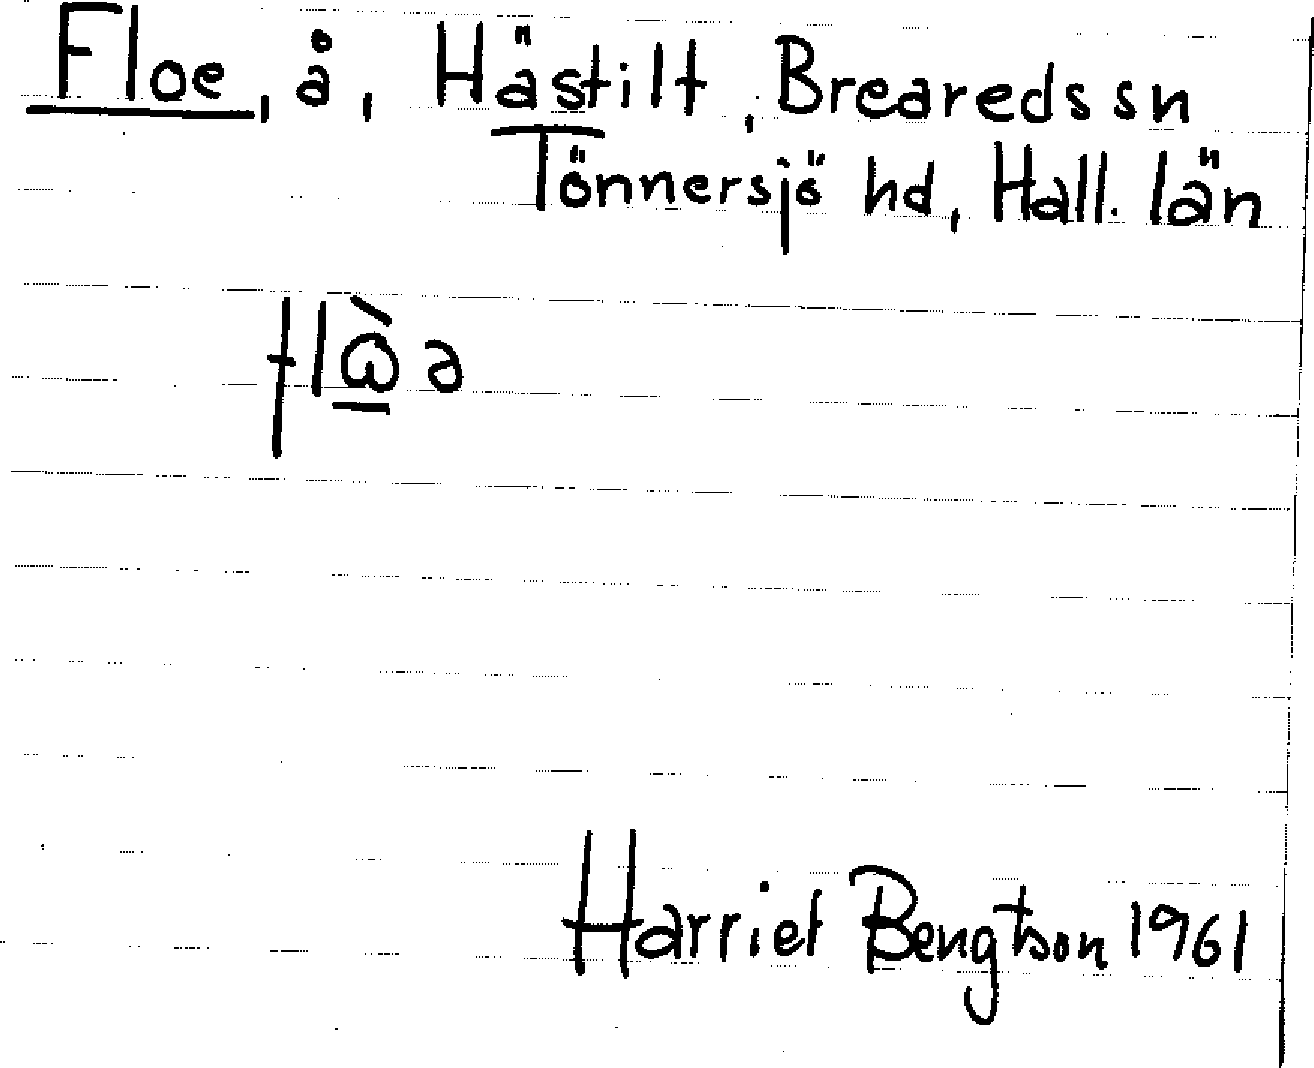 Floe, å, Hästilt, Breareds sn
Tönnersjö hd, Hall. län
flὼ̲ə
Harriet Bengtson 1961